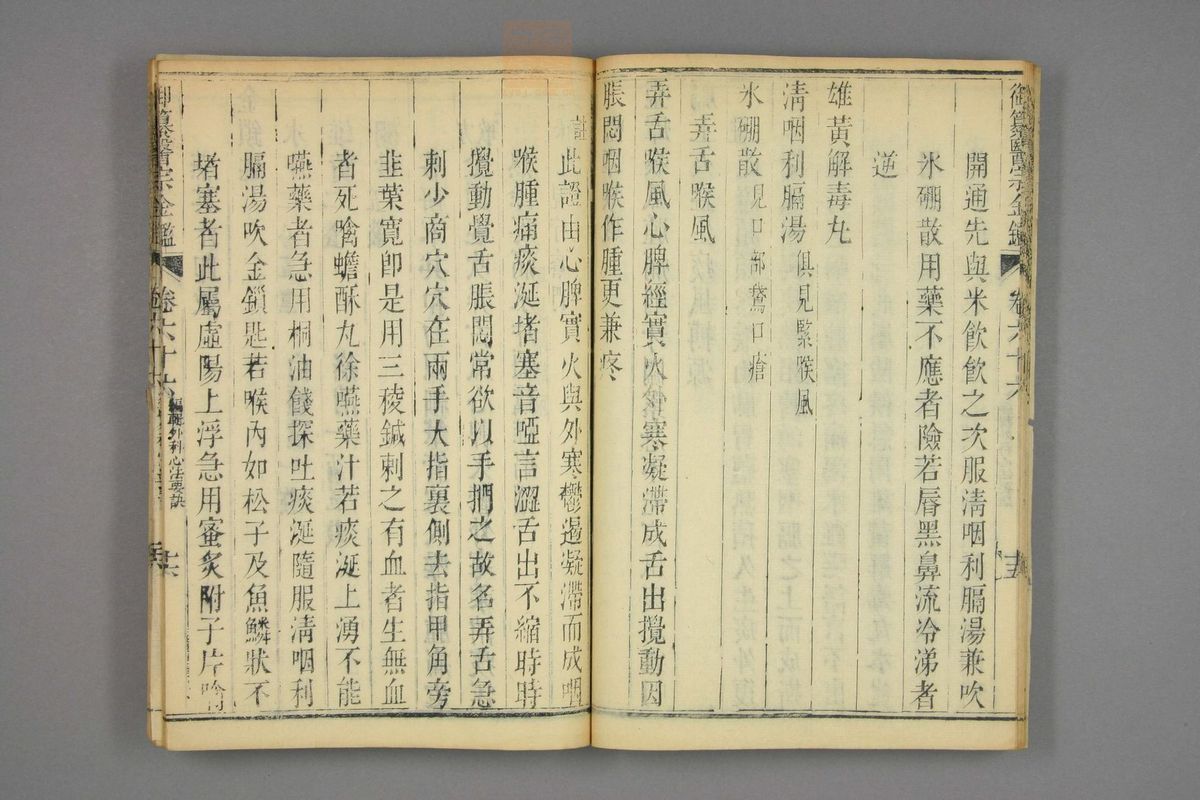 御纂醫宗金鑑 卷六十六
開通先與米飲飲之次服淸咽利膈湯兼吹
氷硼散用藥不應者險若脣黑鼻流冷涕者
逆
雄黃解毒丸
淸咽利膈湯 俱見緊喉風
氷硼散 見口部鵞口瘡
弄舌喉風
弄舌喉風心脾經實火外寒凝滯成舌出攪動因
脹悶咽喉作腫更兼疼
註此證由心脾實火與外寒鬱遏凝滯而成咽
喉腫痛痰涎堵塞音啞言澀舌出不縮時時
攪動覺舌脹悶常欲以手捫之故名弄舌急
刺少商穴穴在兩手大指裏側去指甲角旁
韭葉寬卽是用三稜鍼刺之有血者生無血
者死噙蟾酥丸徐嚥藥汁若痰涎上湧不能
嚥藥者急用桐油餞探吐痰涎隨服淸咽利
膈湯吹金鎖匙若喉內如松子及魚鱗狀不
堵塞者此屬虛陽上浮急用蜜炙附子片噙
御纂醫宗金鑑 卷六十六 編輯外科心法要訣